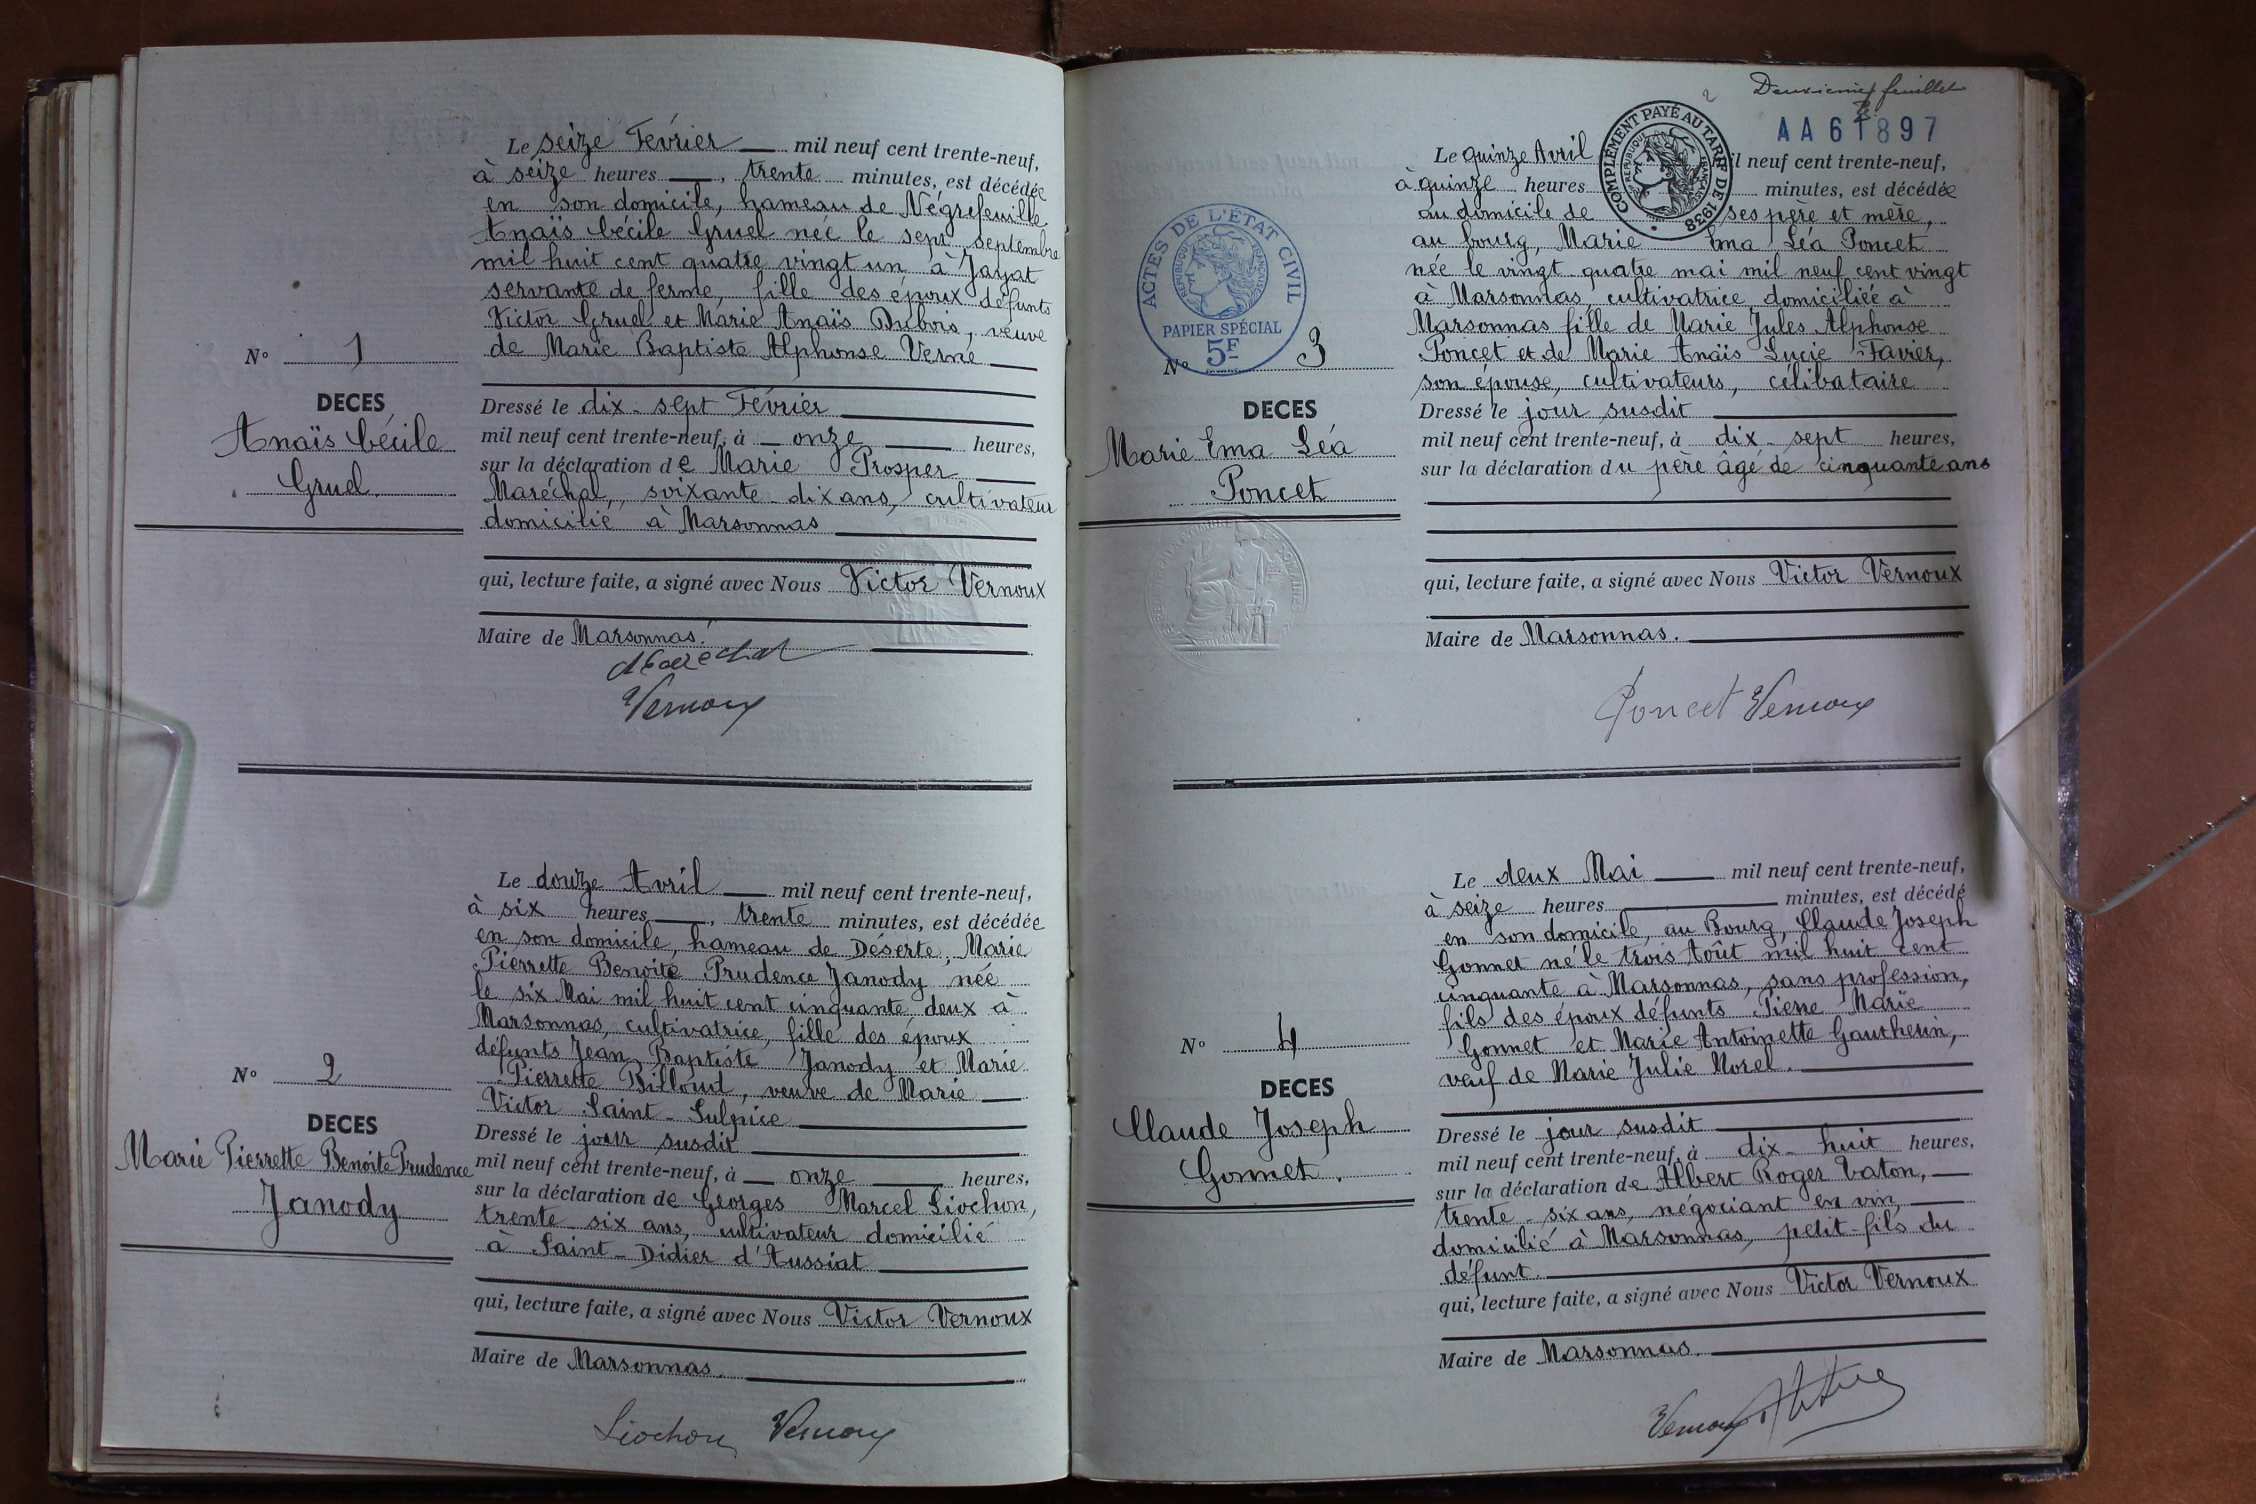 Le seize Février mil neuf cent trente-neuf,
à seize heures, trente minutes, est décédée
en son domicile, hameau de Négrefeuille
Anaïs Cécile Gruel née le sept septembre
mil huit cent quatre vingt un à Jayat
servante de ferme, fille des époux défunts
Victor Gruel et Marie Anaïs Dubois, veuve
de Marie Baptiste Alphonse Verne
N° 1
DECES
Anaïs Cécile
Gruel.
Dressé le dix-sept Février
mil neuf cent trente-neuf, à onze heures,
sur la déclaration de Marie Prosper
Maréchal, soixante-dix ans, cultivateur
domicilié à Marsonnas
qui, lecture faite, a signé avec Nous Victor Vernoux
Maire de Marsonnas.
Maréchal
Vernoux
Le douze Avril mil neuf cent trente-neuf,
à six heures, trente minutes, est décédée
en son domicile, hameau de Déserte, Marie
Pierrette Benoite Prudence Janody née
le six Mai mil huit cent cinquante deux à
Marsonnas, cultivatrice, fille des époux
défunts Jean Baptiste Janody et Marie
Pierrette Billoud, veuve de Marie
Victor Saint-Sulpice
N° 2
DECES
Marie Pierrette Benoite Prudence
Janody
Dressé le jour susdit
mil neuf cent trente-neuf, à onze heures,
sur la déclaration de Georges Marcel Liochon,
trente six ans, cultivateur domicilié
à Saint-Didier d'Aussiat
qui, lecture faite, a signé avec Nous Victor Vernoux
Maire de Marsonnas.
Liochon Vernoux
2
Deuxième feuillet
AA 61897
COMPLÉMENT PAYÉ AU TARIF DE 1938
RÉPUBLIQUE FRANÇAISE
Le quinze Avril mil neuf cent trente-neuf,
à quinze heures minutes, est décédée
au domicile de ses père et mère,
au bourg, Marie Ema Léa Poncet
née le vingt-quatre mai mil neuf cent vingt
à Marsonnas, cultivatrice, domiciliée à
Marsonnas fille de Marie Jules Alphonse
Poncet et de Marie Anaïs Lucie Favier,
son épouse, cultivateurs, célibataire
ACTES DE L'ÉTAT CIVIL
RÉPUBLIQUE FRANÇAISE
PAPIER SPÉCIAL
5F
N° 3
DECES
Marie Ema Léa
Poncet
Dressé le jour susdit
mil neuf cent trente-neuf, à dix-sept heures,
sur la déclaration du père âgé de cinquante ans
qui, lecture faite, a signé avec Nous Victor Vernoux
Maire de Marsonnas.
Poncet Vernoux
Le deux Mai mil neuf cent trente-neuf,
à seize heures minutes, est décédé
en son domicile, au Bourg, Claude Joseph
Gonnet né le trois Août mil huit cent
cinquante à Marsonnas, sans profession,
fils des époux défunts Pierre Marie
Gonnet et Marie Antoinette Gautherin,
veuf de Marie Julie Morel.
N° 4
DECES
Claude Joseph
Gonnet.
Dressé le jour susdit
mil neuf cent trente-neuf, à dix-huit heures,
sur la déclaration de Albert Roger Vaton,
trente-six ans, négociant en vin,
domicilié à Marsonnas, petit-fils du
défunt.
qui, lecture faite, a signé avec Nous Victor Vernoux
Maire de Marsonnas.
Vernoux